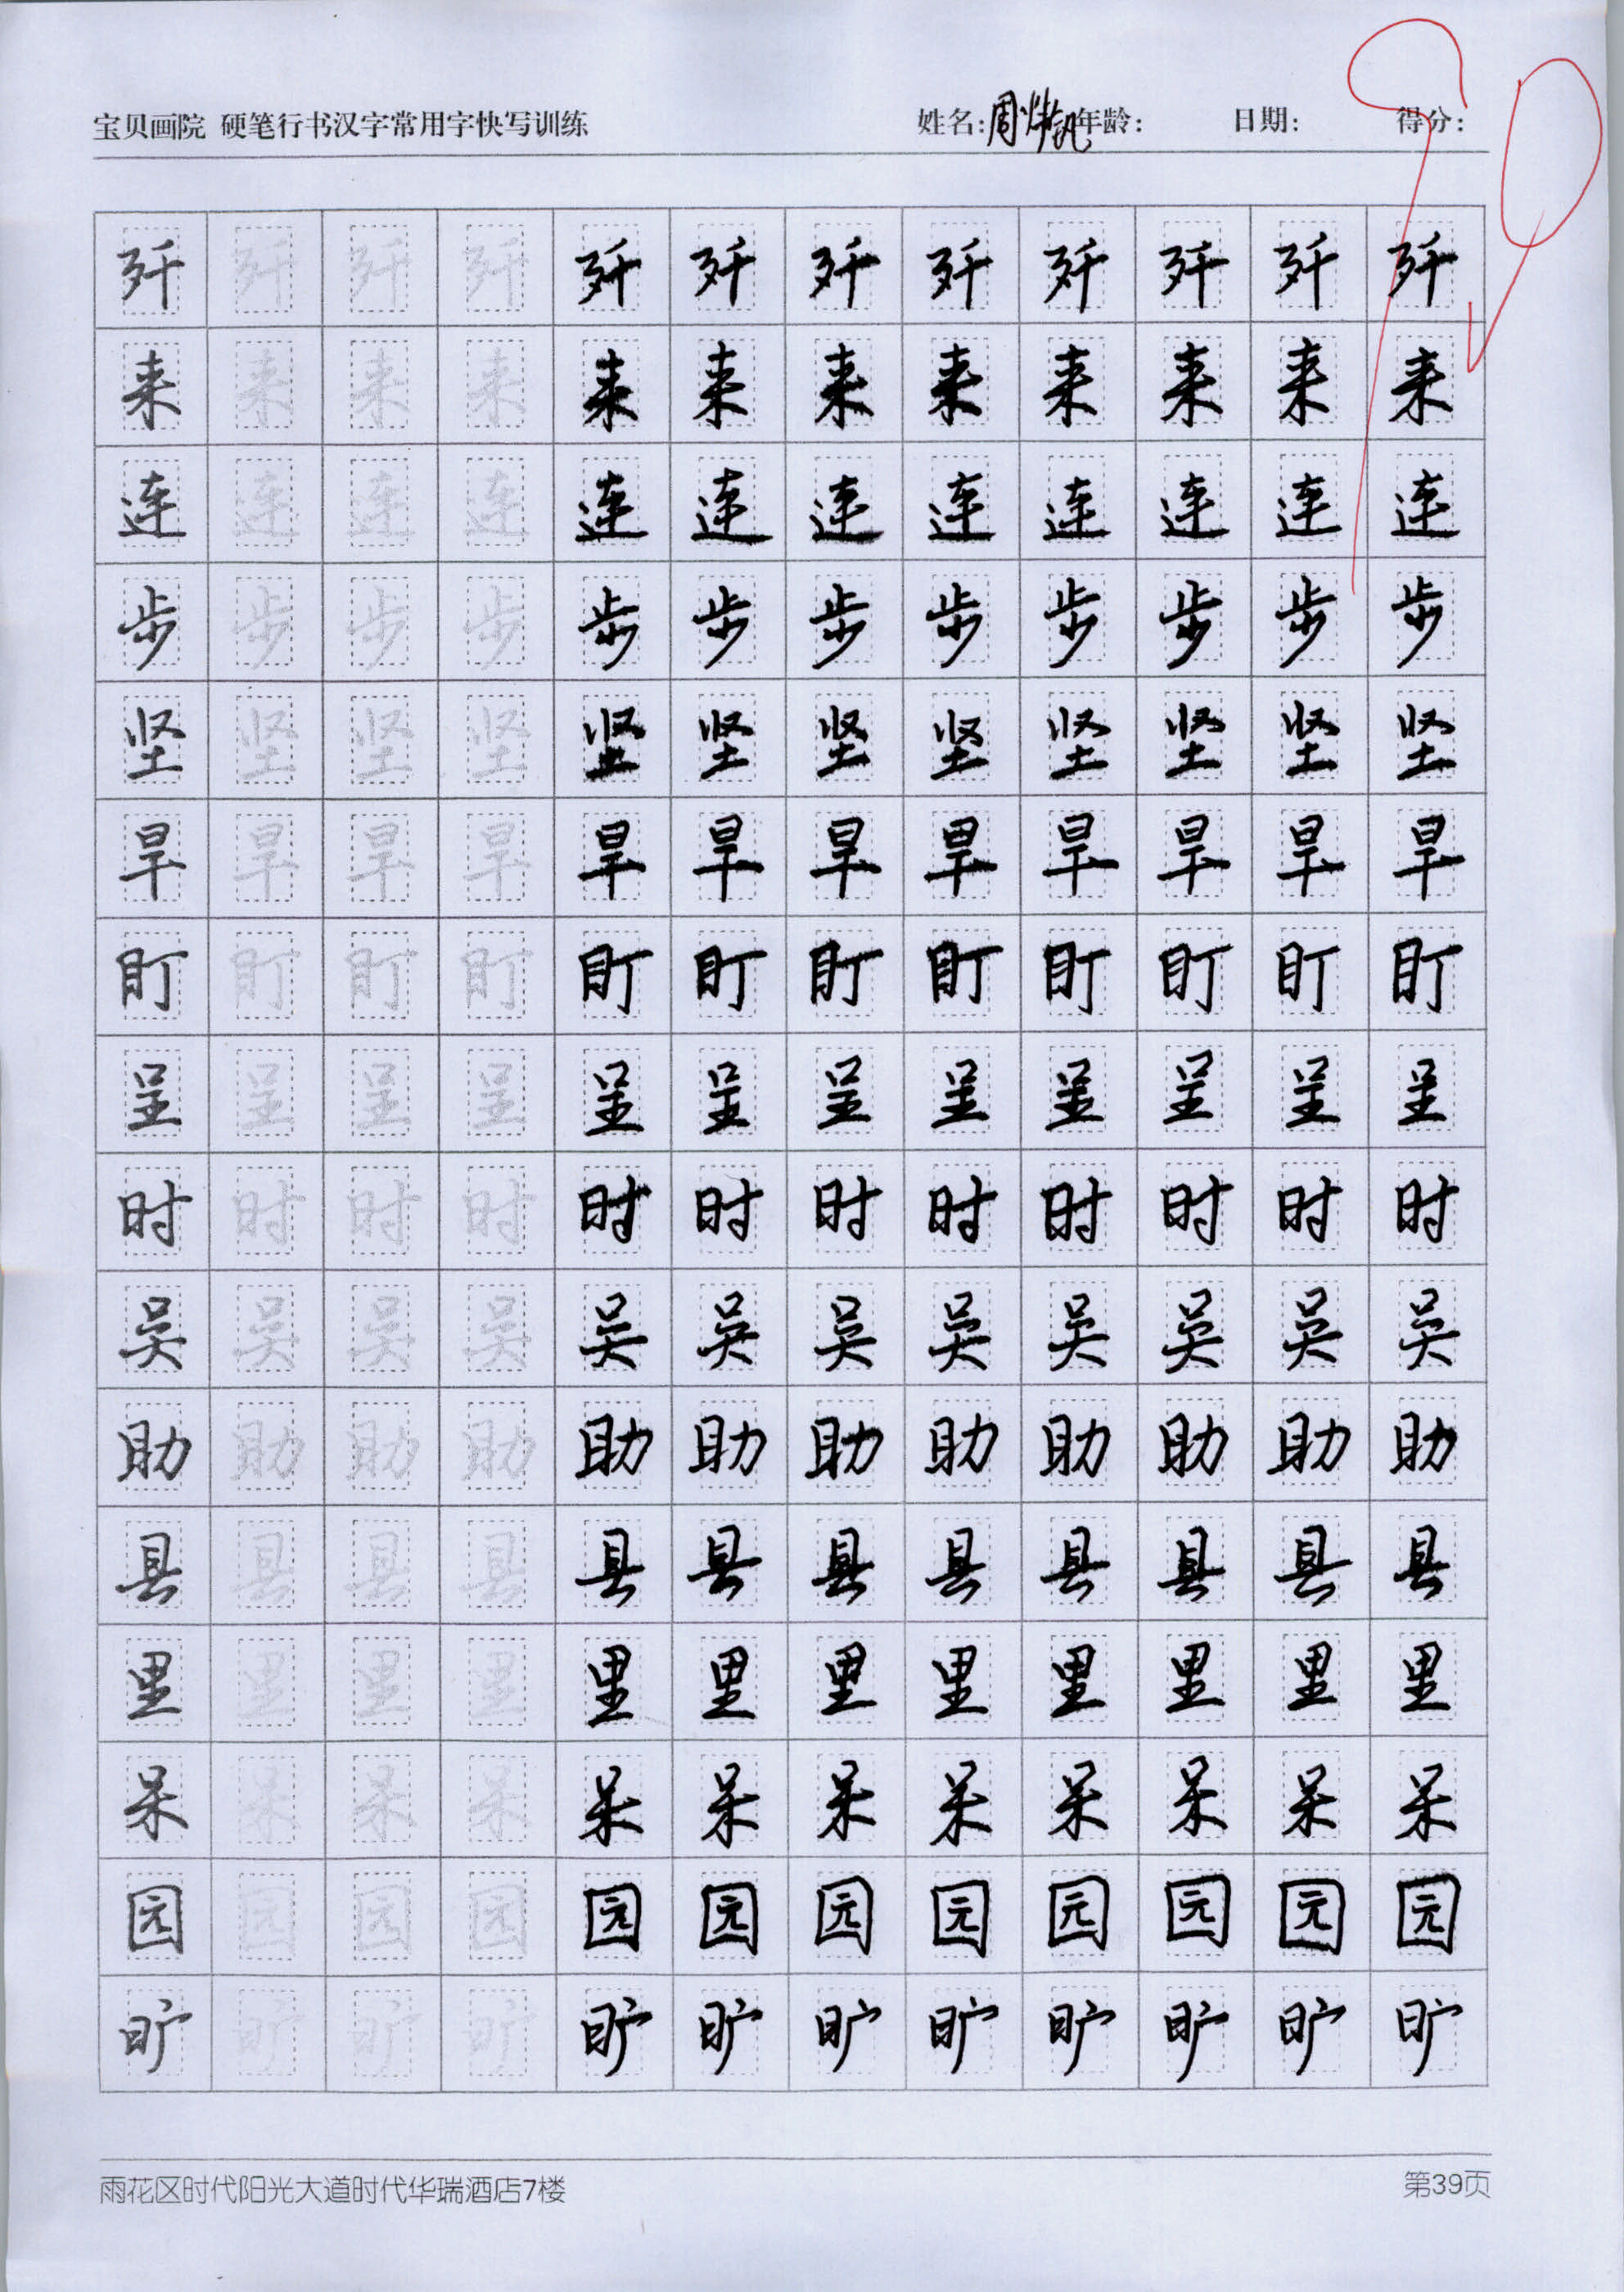 宝贝画院 硬笔行书汉字常用字快写训练 姓名:周 年龄: 日期: 得分: 90
歼 歼 歼 歼 歼 歼 歼 歼 歼 歼 歼 歼
来 来 来 来 来 来 来 来 来 来 来 来
连 连 连 连 连 连 连 连 连 连 连 连
步 步 步 步 步 步 步 步 步 步 步 步
坚 坚 坚 坚 坚 坚 坚 坚 坚 坚 坚 坚
旱 旱 旱 旱 旱 旱 旱 旱 旱 旱 旱 旱
盯 盯 盯 盯 盯 盯 盯 盯 盯 盯 盯 盯
呈 呈 呈 呈 呈 呈 呈 呈 呈 呈 呈 呈
时 时 时 时 时 时 时 时 时 时 时 时
吴 吴 吴 吴 吴 吴 吴 吴 吴 吴 吴 吴
助 助 助 助 助 助 助 助 助 助 助 助
县 县 县 县 县 县 县 县 县 县 县 县
里 里 里 里 里 里 里 里 里 里 里 里
呆 呆 呆 呆 呆 呆 呆 呆 呆 呆 呆 呆
园 园 园 园 园 园 园 园 园 园 园 园
旷 旷 旷 旷 旷 旷 旷 旷 旷 旷 旷 旷
雨花区时代阳光大道时代华瑞酒店7楼 第39页